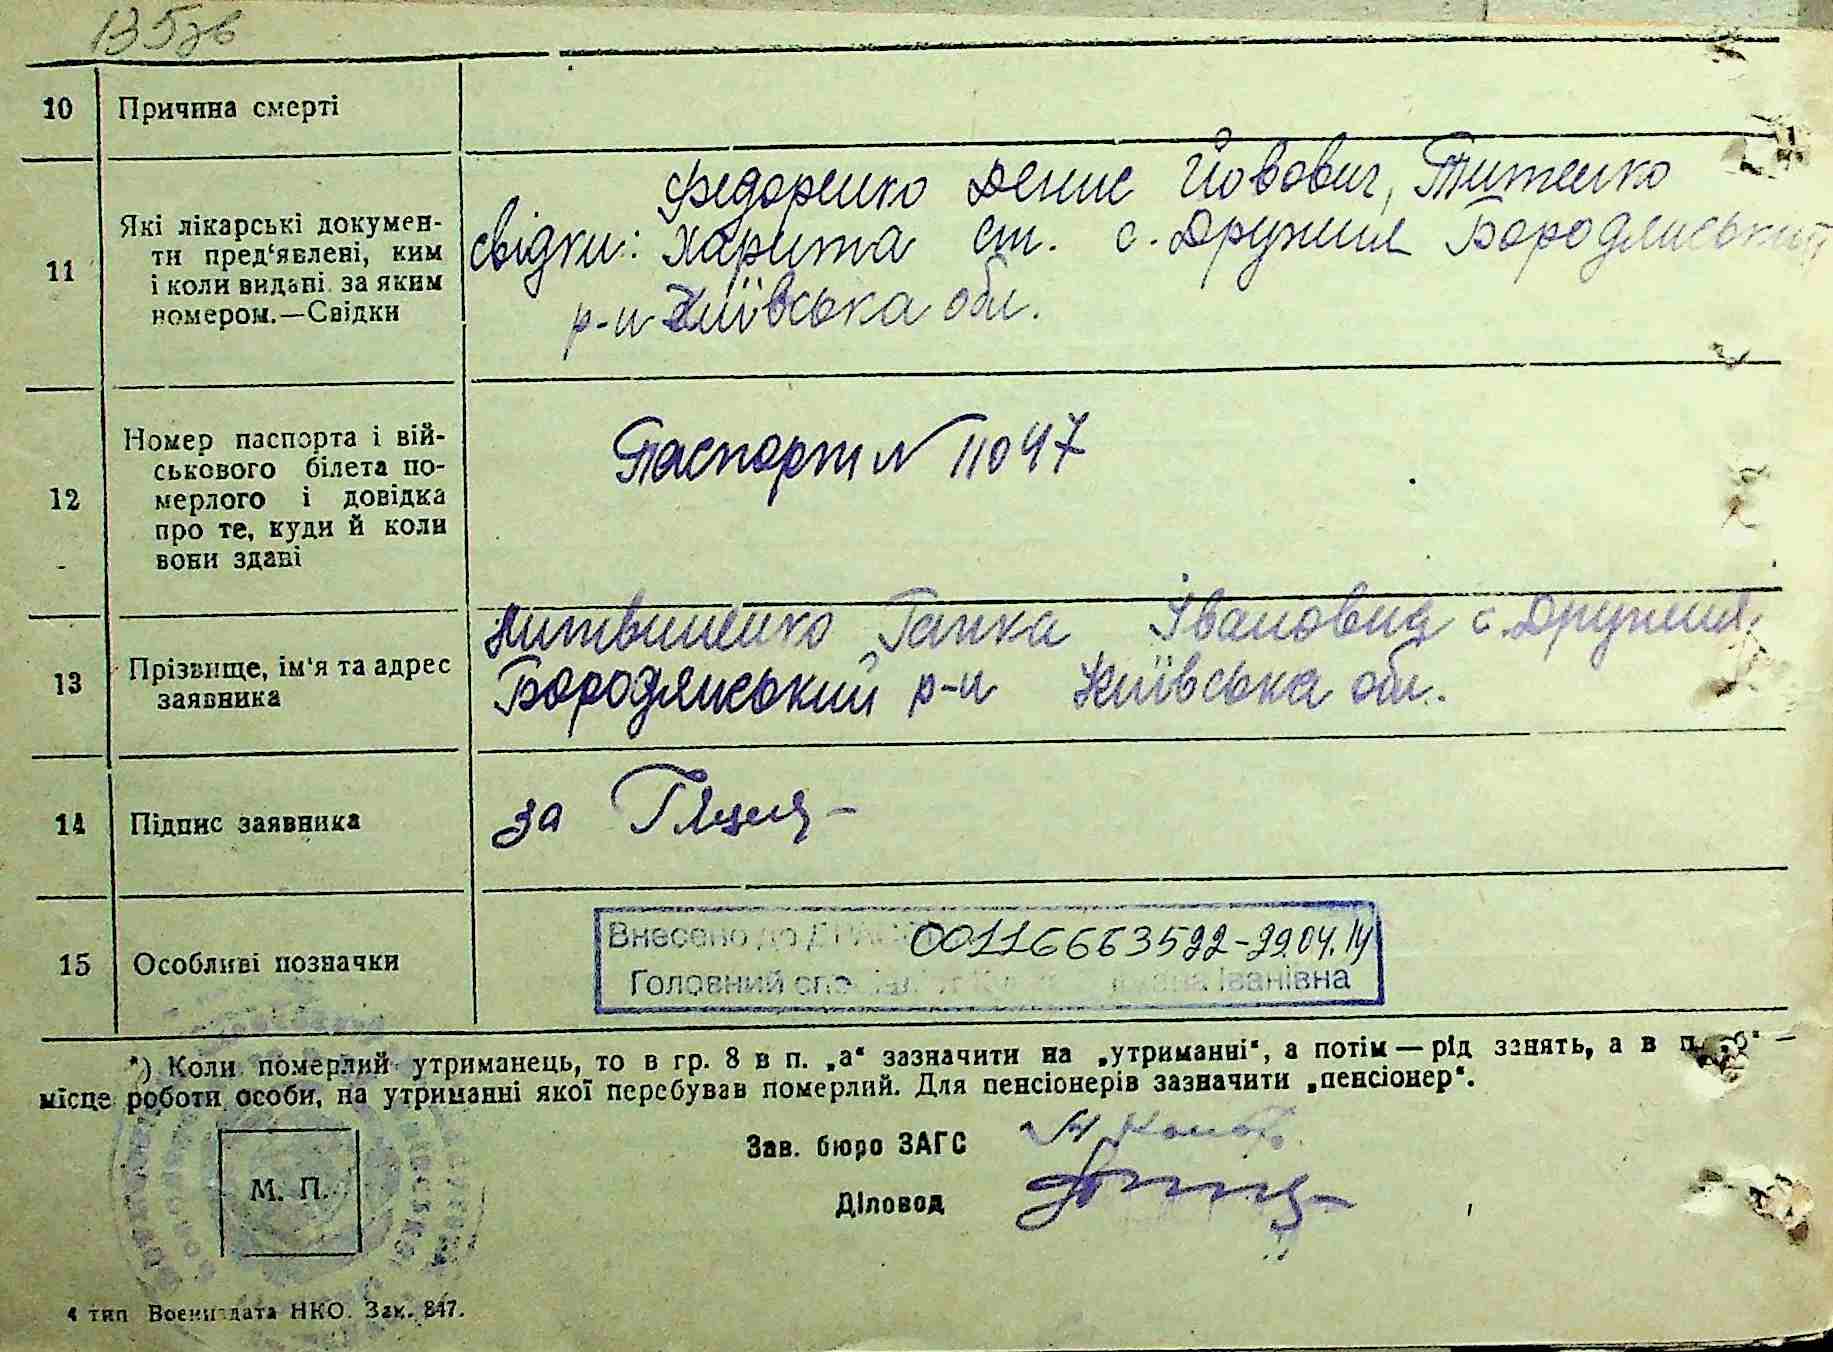 135зв
10 Причина смерті
11 Які лікарські докумен-
ти пред'явлені, ким
і коли видані за яким
номером.—Свідки
Федоренко Денис Йовович, Титенко
свідки: Харита ст. с. Дружня Бородянський
р-н Київська обл.
12 Номер паспорта і вій-
ськового білета по-
мерлого і довідка
про те, куди й коли
вони здані
Паспорт № 11047
13 Прізвище, ім'я та адрес
заявника
Литвиненко Гапка Івановна с. Дружня
Бородянський р-н Київська обл.
14 Підпис заявника
за
15 Особливі позначки
Внесено до 00116663522-29.04.14
Головний Іванівна
*) Коли померлий утриманець, то в гр. 8 в п. „а“ зазначити на „утриманні“, а потім — рід занять, а в п.
місце роботи особи, на утриманні якої перебував померлий. Для пенсіонерів зазначити „пенсіонер“.
Зав. бюро ЗАГС
Діловод
М. П.
4 тип Воениздата НКО. Зак. 847.